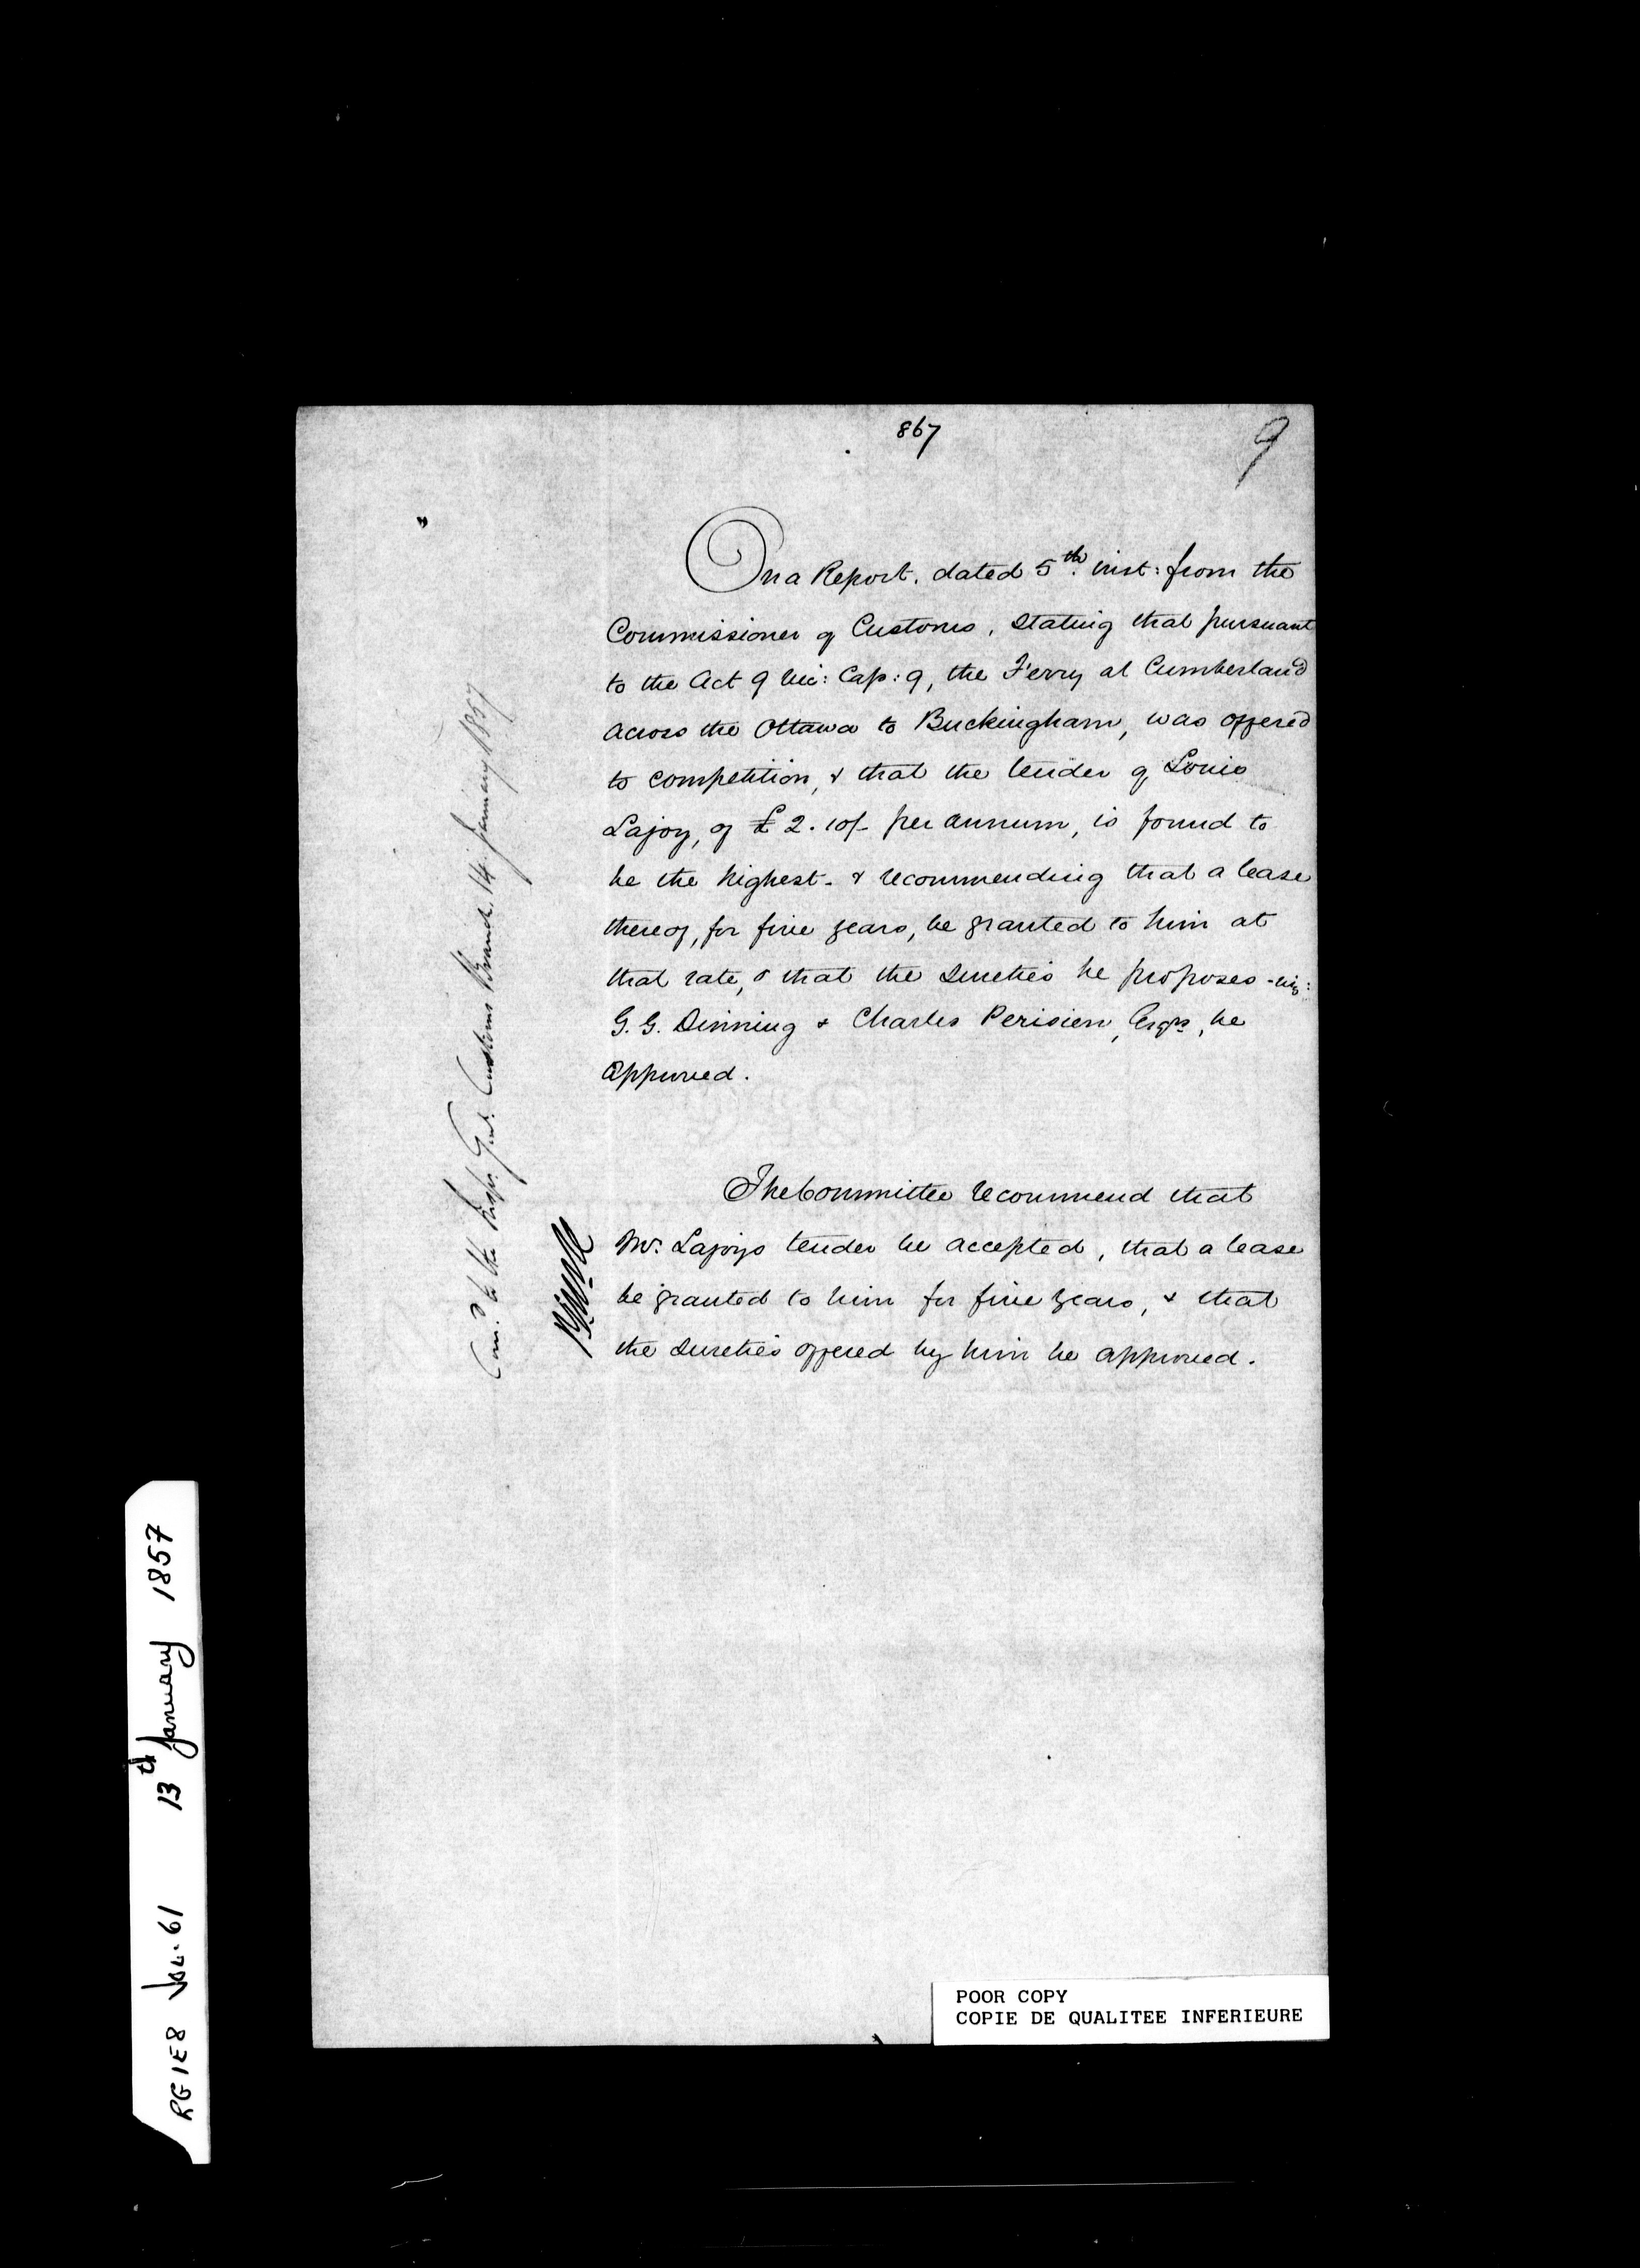 867
9
On a Report. dated 5th. inst: from the
Commissioner of Customs, stating that pursuant
to the Act 9 Vic: Cap: 9, the Ferry at Cumberland
across the Ottawa to Buckingham, was offered
to competition, & that the tender of Louis
Lajoy, of £2.10/- per annum, is found to
be the highest - & recommending that a lease
thereof, for five years, be granted to him at
that rate, & that the sureties he proposes - viz:
G. G. Dinning & Charles Perisien, Esqrs, be
approved.
The Committee recommend that
Mr. Lajoys tender be accepted, that a lease
be granted to him for five years, & that
the sureties offered by him be approved.
Com.d to the Insp. Genl. Customs Branch, 14 January 1857
RG1E8 Vol. 61 13th January 1857
POOR COPY
COPIE DE QUALITEE INFERIEURE